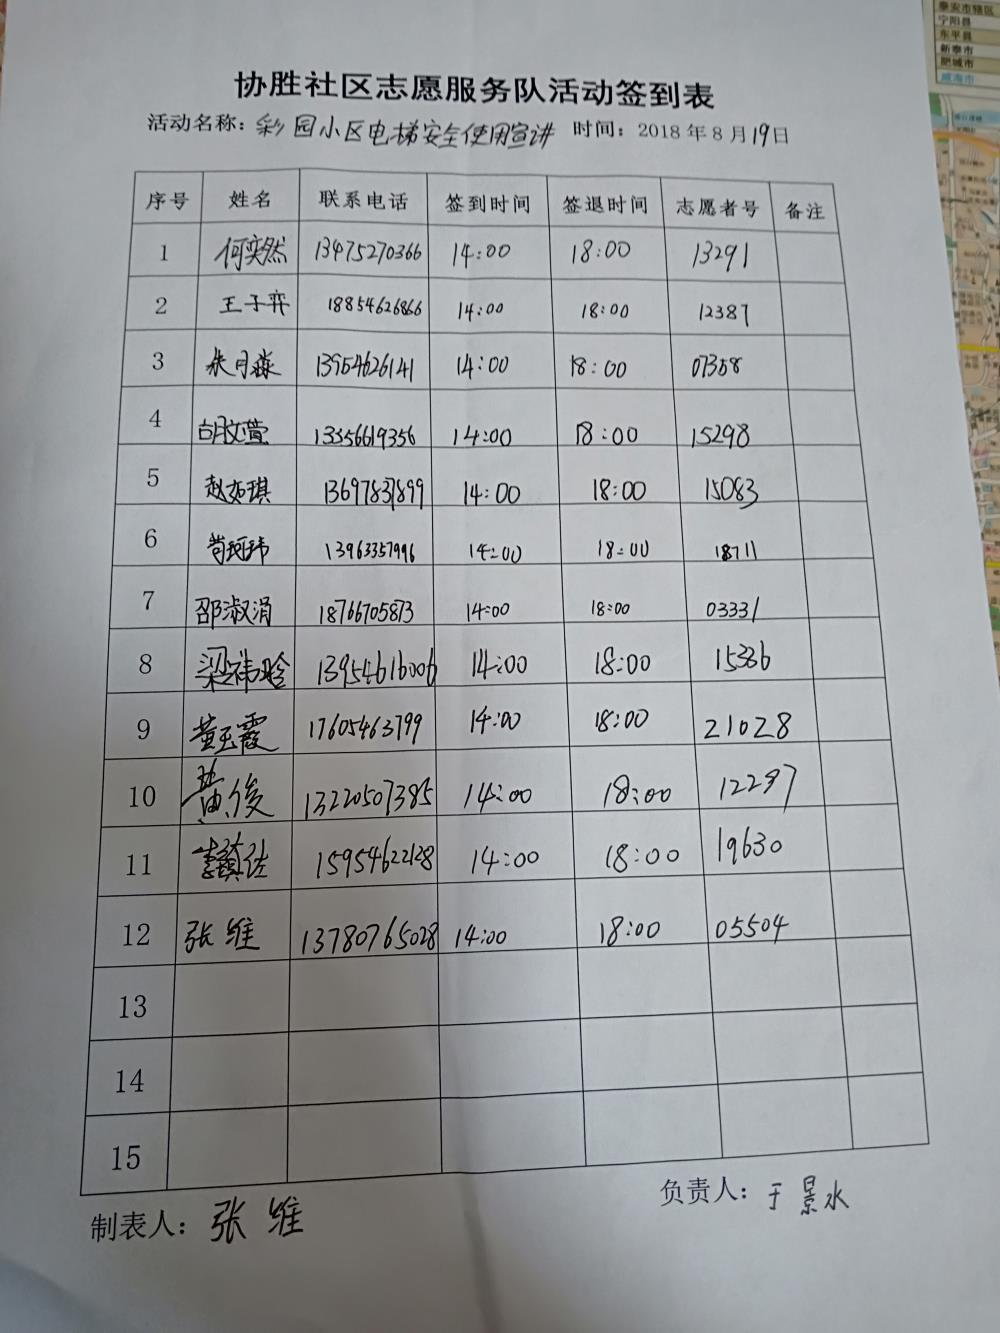 协胜社区志愿服务队活动签到表
活动名称：彩园小区电梯安全使用宣讲 时间：2018年8月19日
序号 姓名 联系电话 签到时间 签退时间 志愿者号 备注
1 何奕然 13475270366 14:00 18:00 13291
2 王子弈 18854626866 14:00 18:00 12387
3 朱月淼 13954626141 14:00 18:00 07358
4 胡文萱 13356619356 14:00 18:00 15298
5 赵茹琪 13697837899 14:00 18:00 15083
6 苟珂玮 13963357996 14:00 18:00 18711
7 邵淑涓 18766705873 14:00 18:00 03331
8 梁祎晗 13954616006 14:00 18:00 15336
9 董玉霞 17605463799 14:00 18:00 21028
10 黄俊 13220507385 14:00 18:00 12297
11 李镇佐 15954622128 14:00 18:00 19630
12 张维 13780765028 14:00 18:00 05504
13
14
15
制表人：张维 负责人：于景水
泰安市辖区
宁阳县
东平县
新泰市
肥城市
威海市